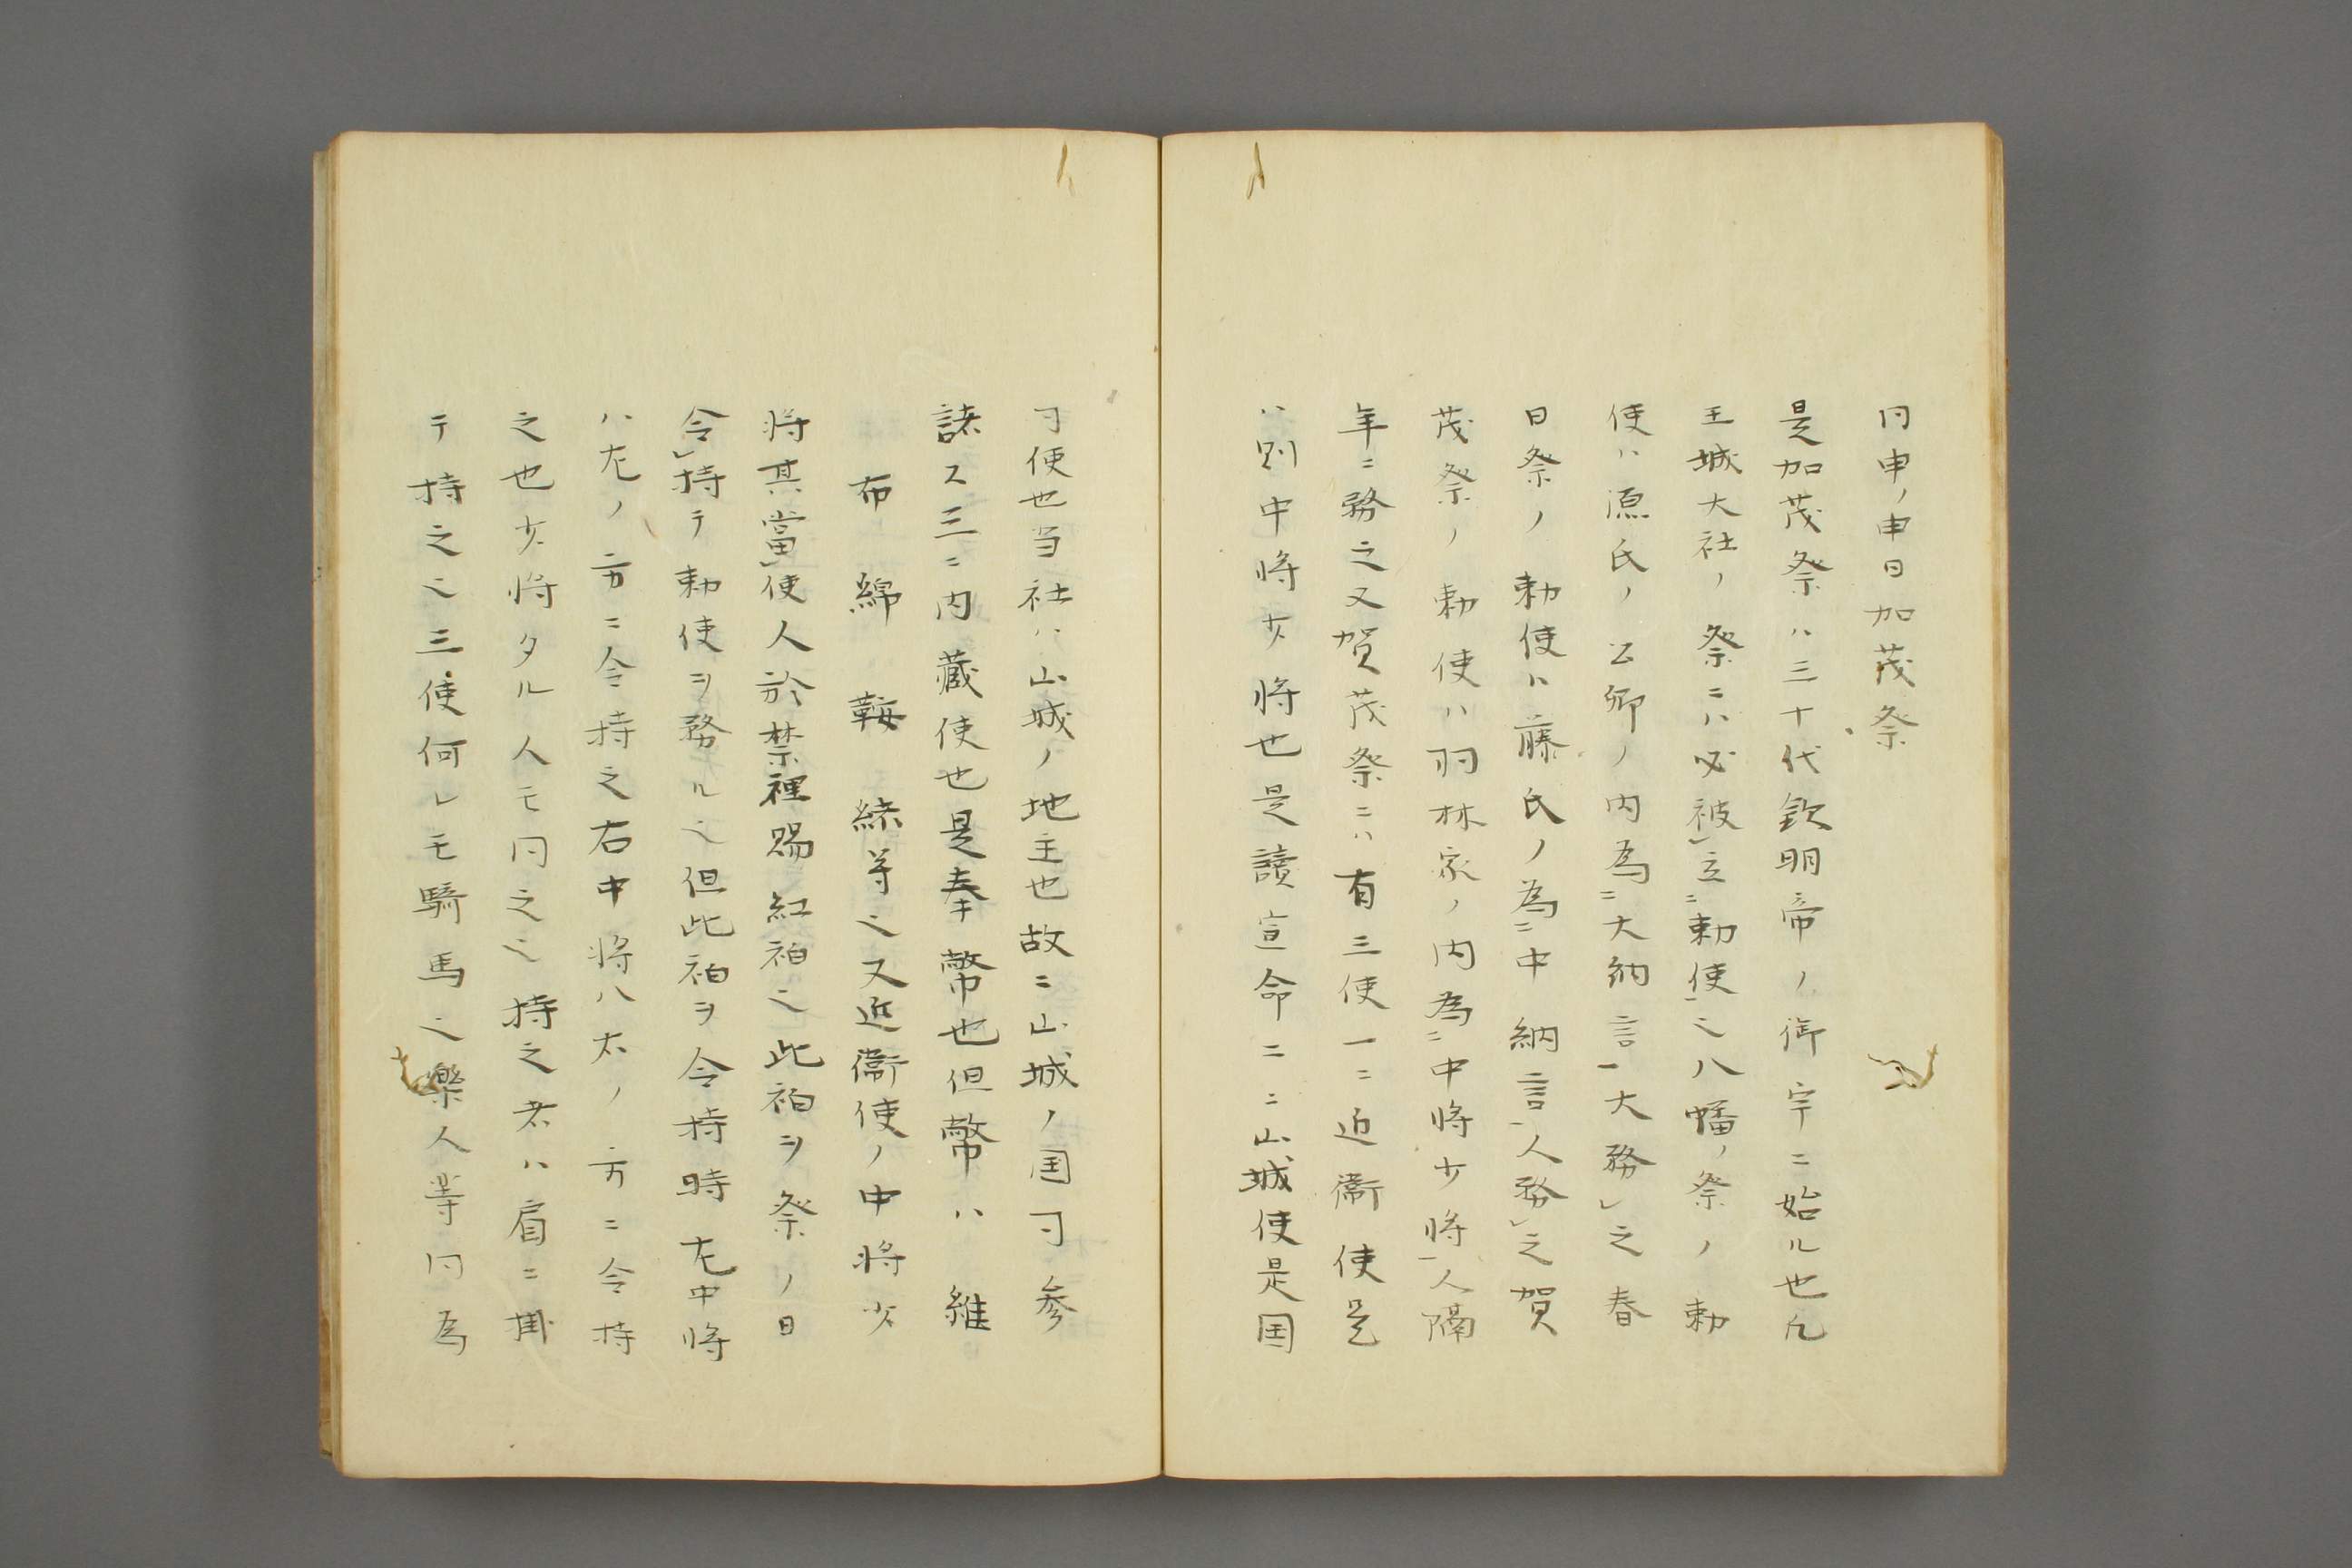 同申ノ申日加茂祭
是加茂祭ハ三十代欽明帝ノ御宇ニ始ル也凡
王城大社ノ祭ニハ必被レ立ニ勅使一之八幡ノ祭ノ勅
使ハ源氏ノ公卿ノ内為ニ大納言一大務レ之春
日祭ノ勅使ハ藤氏ノ為ニ中納言一人務レ之賀
茂祭ノ勅使ハ羽林家ノ内為ニ中将少将一人隔
年ニ務之又賀茂祭ニハ有三使一ニ近衛使是
ハ則中将少将也是讀宣命二ニ山城使是国
寸使也当社ハ山城ノ地主也故ニ山城ノ国寸参
詣ス三ニ内藏使也是奉幣也但幣ハ絁
布綿鞍綵等之又近衛使ノ中将少
将其當レ使人於禁裡賜紅袙之此袙ヲ祭ノ日
令レ持テ勅使ヲ務ル之但此袙ヲ令持時左中将
ハ左ノ方ニ令持之右中将ハ右ノ方ニ令持
之也少将タル人モ同之之持之者ハ肩ニ掛
テ持之之三使何レモ騎馬之樂人等同為